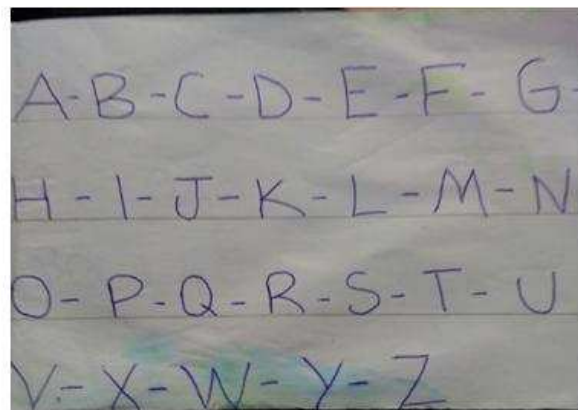 A-B-C-D-E-F-G-
H-I-J-K-L-M-N
O-P-Q-R-S-T-U
V-X-W-Y-Z